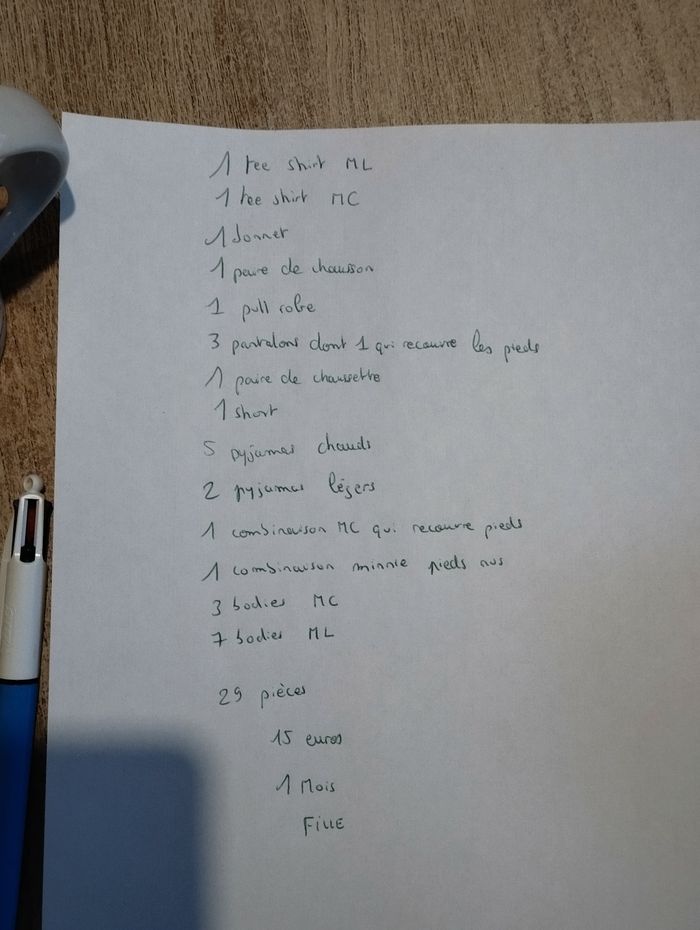 1 tee shirt ML
1 tee shirt MC
1 bonnet
1 paire de chausson
1 pull robe
3 pantalons dont 1 qui recouvre les pieds
1 paire de chaussette
1 short
5 pyjamas chauds
2 pyjamas légers
1 combinaison MC qui recouvre pieds
1 combinaison minnie pieds nus
3 bodies MC
7 bodies ML
29 pièces
15 euros
1 Mois
FILLE